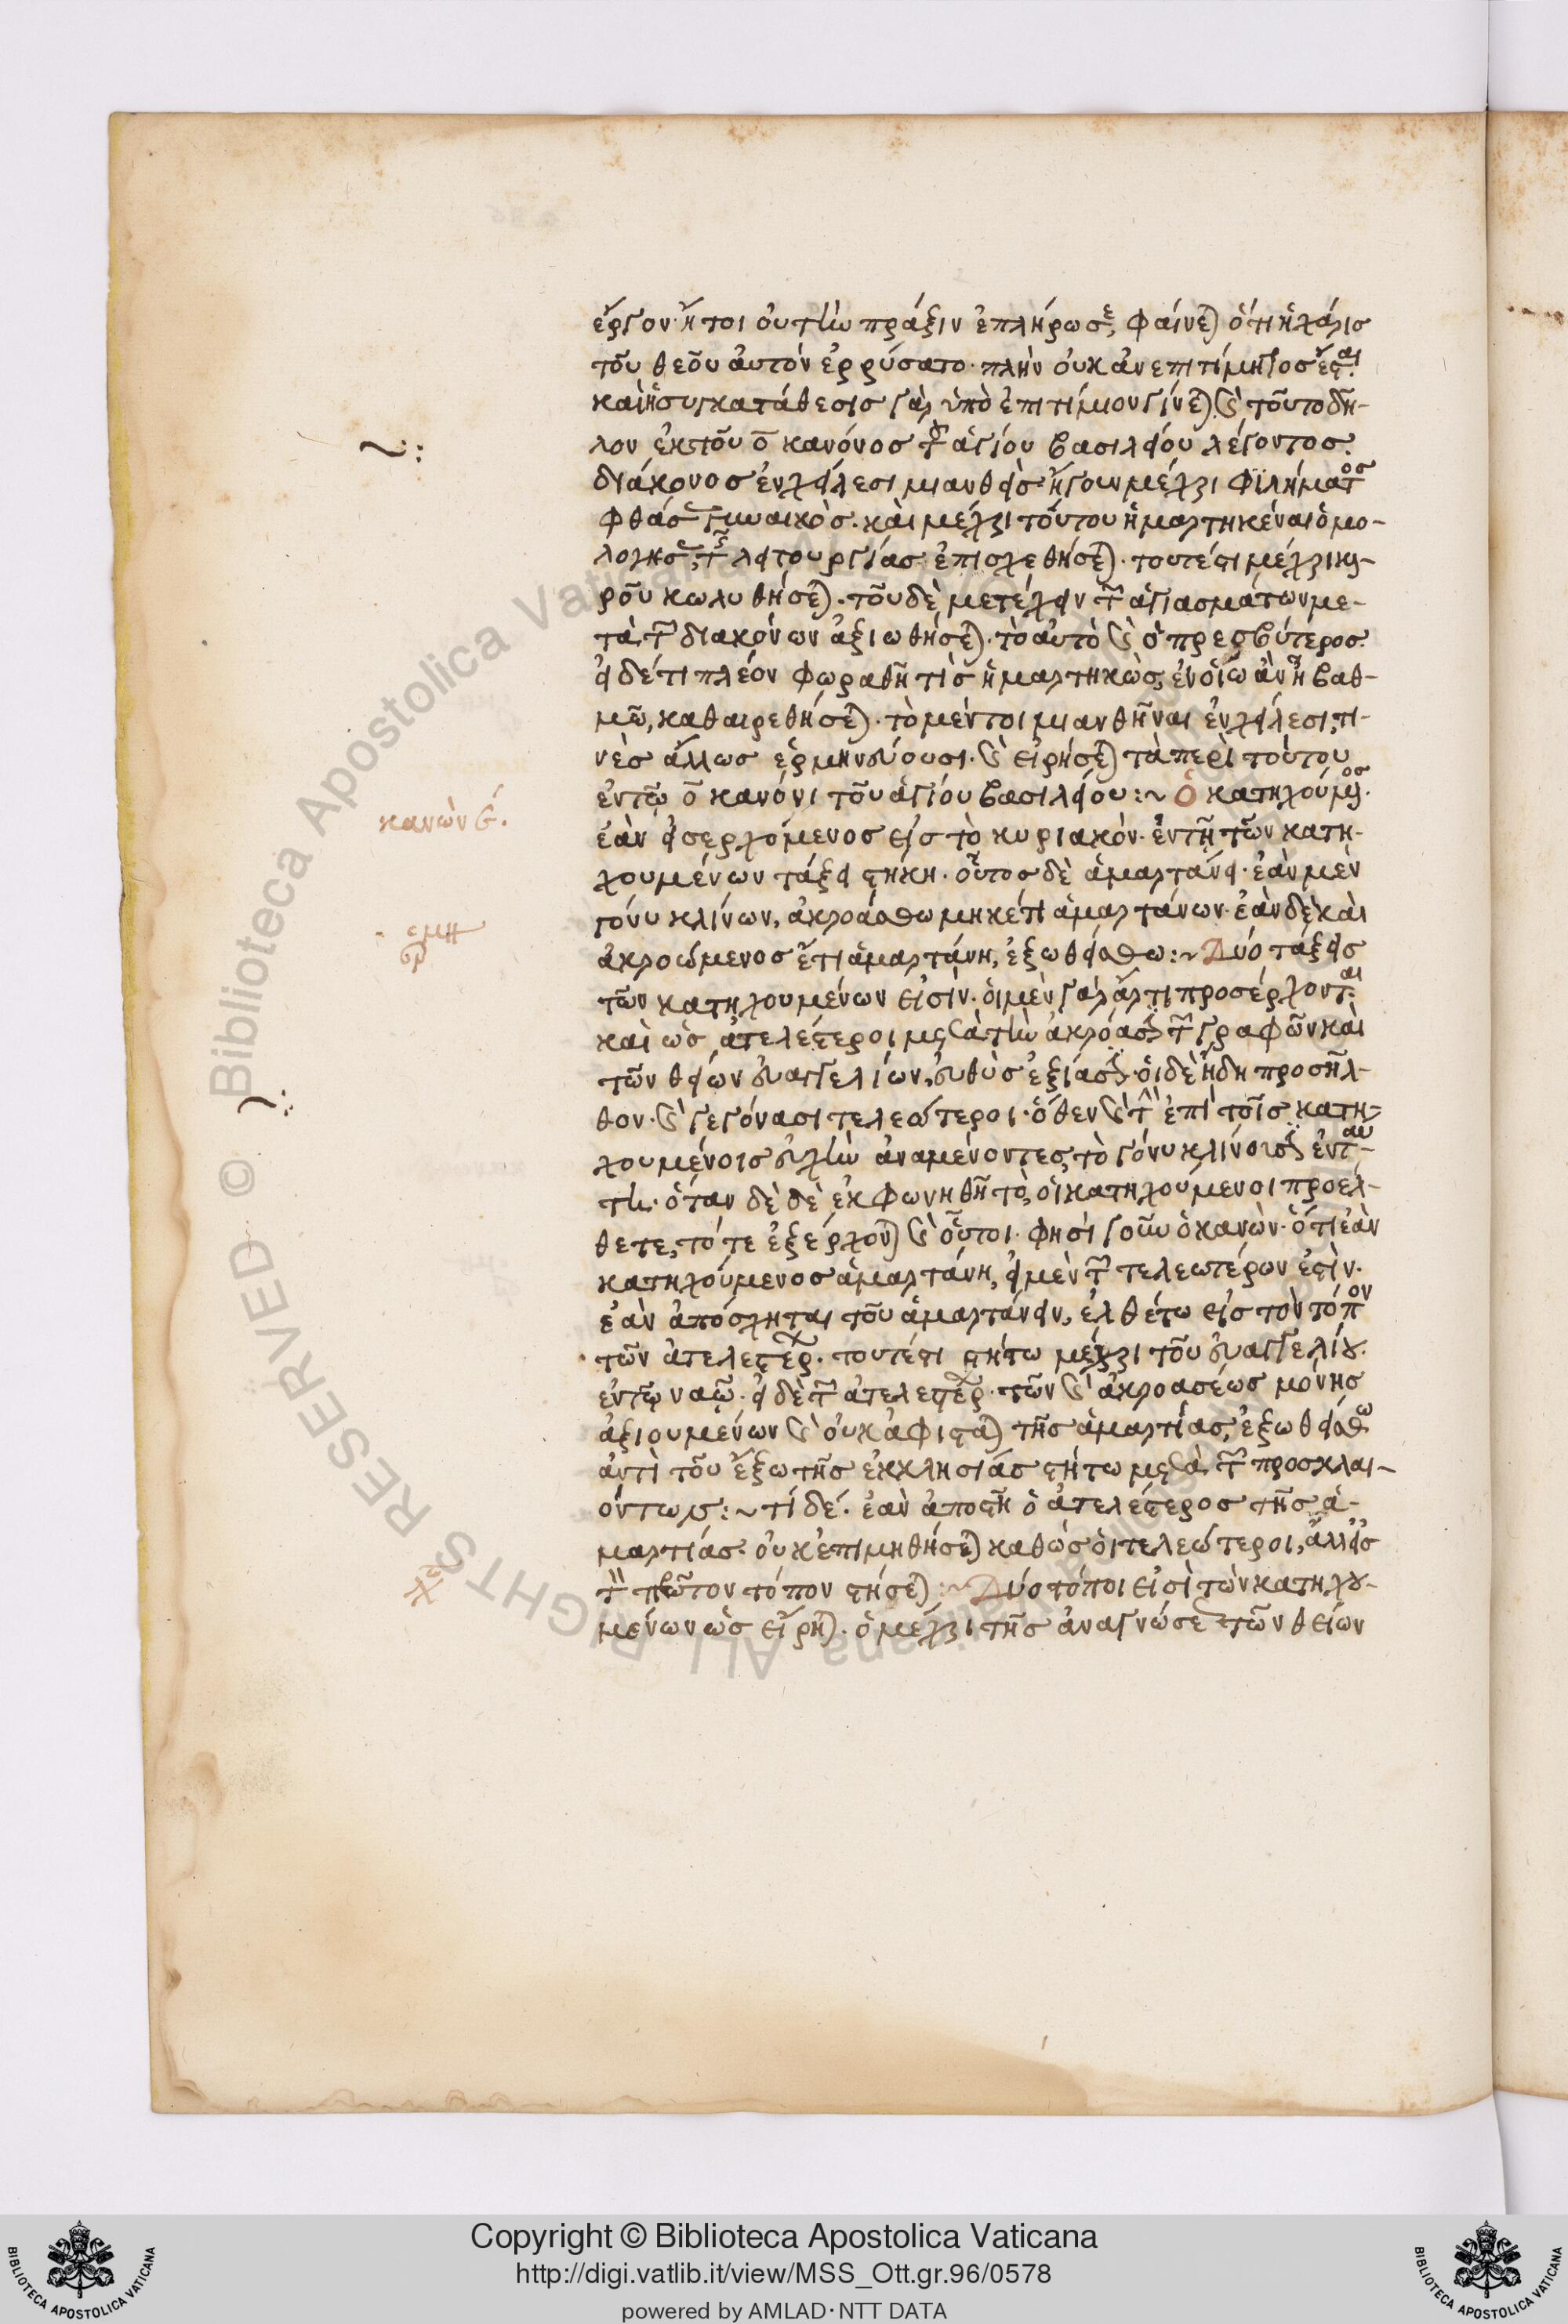 ἔργον· ἤτοι οὐ τὴν πρᾶξιν ἐπλήρωσε, φαίνεται ὅτι ἡ χάρις
τοῦ θεοῦ αὐτὸν ἐρρύσατο· πλὴν οὐκ ἀνεπιτίμητος ἔσται.
καὶ ἡ συγκατάθεσις γὰρ ὑπὸ ἐπιτίμιον γίνεται καὶ τοῦτο δῆ-
λον ἐκ τοῦ ο κανόνος τοῦ ἁγίου βασιλείου λέγοντος.
διάκονος ἐν χείλεσι μιανθεὶς ἤγουν μέχρι φιλήματος
φθάσας γυναικός. καὶ μέχρι τούτου ἡμαρτηκέναι ὁμο-
λογήσας, τῆς λειτουργίας ἐπισχεθήσεται. τουτέστι μέχρι και-
ροῦ κωλυθήσεται. τοῦ δὲ μετέχειν τῶν ἁγιασμάτων με-
τὰ τῶν διακόνων ἀξιωθήσεται. τὸ αὐτὸ καὶ ὁ πρεσβύτερος.
εἰ δέ τι πλέον φωραθῆ τὶς ἡμαρτηκώς, ἐν οἵω ἂν ᾖ βαθ-
μῶ, καθαιρεθήσεται. τὸ μέντοι μιανθῆναι ἐν χείλεσι, τι-
νὲς ἄλλως ἑρμηνεύουσι. καὶ εἰρήσεται τὰ περὶ τούτου
ἐν τῶ ο κανόνι τοῦ ἁγίου βασιλείου:~ Ὁ κατηχούμενος
κανὼν ε.
ἐὰν εἰσερχόμενος εἰς τὸ κυριακὸν· ἐν τῆ τῶν κατη-
χουμένων τάξει στήκη. οὗτος δὲ ἁμαρτάνει· ἐὰν μὲν
γόνυ κλίνων, ἀκροάσθω μηκέτι ἁμαρτάνων· ἐὰν δὲ καὶ
ἀκροώμενος ἔτι ἁμαρτάνη, ἐξωθείσθω:~ Δύο τάξεις
τῶν κατηχουμένων εἰσίν. οἱ μὲν γὰρ ἄρτι προσέρχονται.
καὶ ὡς ἀτελέστεροι μετὰ τὴν ἀκρόασιν τῶν γραφῶν καὶ
τῶν θείων εὐαγγελίων, εὐθὺς ἐξίασιν. οἱ δὲ ἤδη προσῆλ-
θον. καὶ γεγόνασι τελεώτεροι· ὅθεν καὶ τὴν ἐπὶ τοῖς κατη-
χουμένοις εὐχὴν ἀναμένοντες, τὸ γόνυ κλίνουσιν ἐν ταύ-
τη. ὅταν δὲ δὲ ἐκφωνηθῆ τὸ, οἱ κατηχούμενοι προέλ-
θετε, τότε ἐξέρχονται καὶ οὗτοι. φησὶ γοῦν ὁ κανὼν· ὅτι ἐὰν
κατηχούμενος ἁμαρτάνη, εἰ μὲν τῶν τελεωτέρων ἐστὶν.
ἐὰν ἀπόσχηται τοῦ ἁμαρτάνειν, ἐλθέτω εἰς τὸν τόπον
τῶν ἀτελεστέρων. τουτέστι στήτω μέχρι τοῦ εὐαγγελίου.
ἐν τῶ ναῶ. εἰ δὲ τῶν ἀτελεστέρων. τῶν καὶ ἀκροάσεως μόνης
ἀξιουμένων καὶ οὐκ ἀφίσταται τῆς ἁμαρτίας, ἐξωθείσθω
ἀντὶ τοῦ ἔξω τῆς ἐκκλησίας στήτω μετὰ τῶν προσκλαι-
όντων:~ τί δέ. ἐὰν ἀποστῆ ὁ ἀτελέστερος τῆς ἁ-
μαρτίας. οὐκ ἐπιμηθήσεται καθὼς οἱ τελεώτεροι, ἀλλ' εἰς
τὸν πρῶτον τόπον στήσεται:~ Δύο τόποι εἰσὶ τῶν κατηχου-
μένων ὡς εἴρηται. ὁ μέχρι τῆς ἀναγνώσεως τῶν θείων